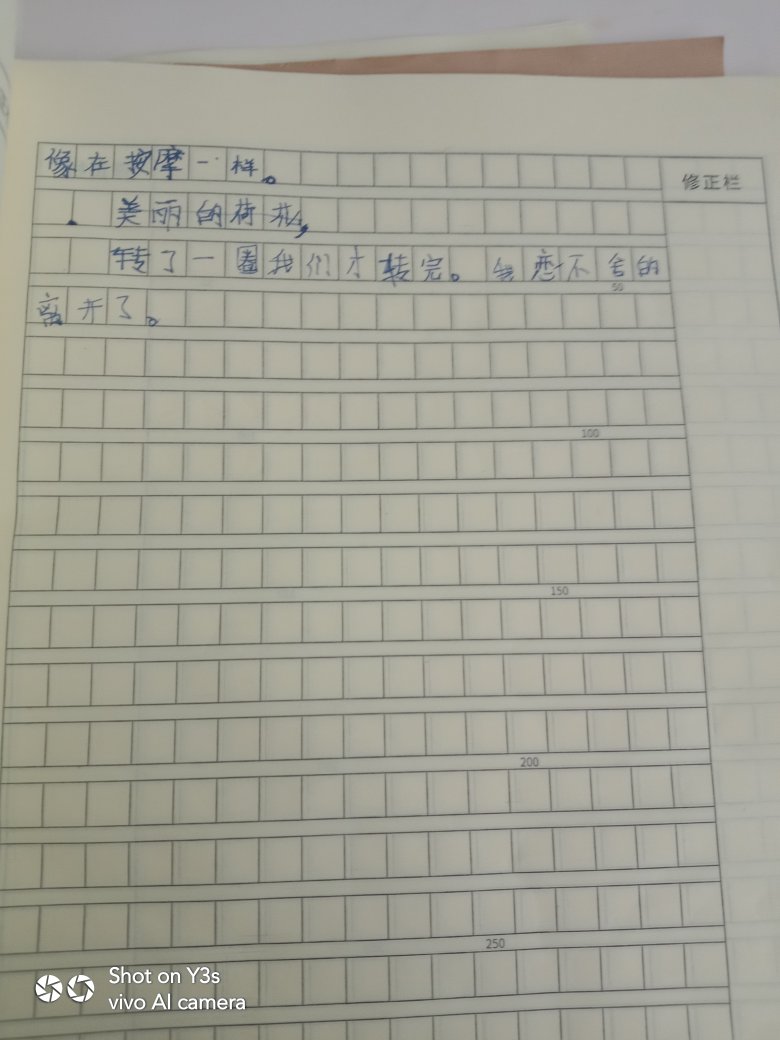 像在按摩一样。
修正栏
美丽的荷花,
转了一圈我们才转完。恋不舍的
50
离开了。
100
150
200
250
Shot on Y3s
vivo AI camera